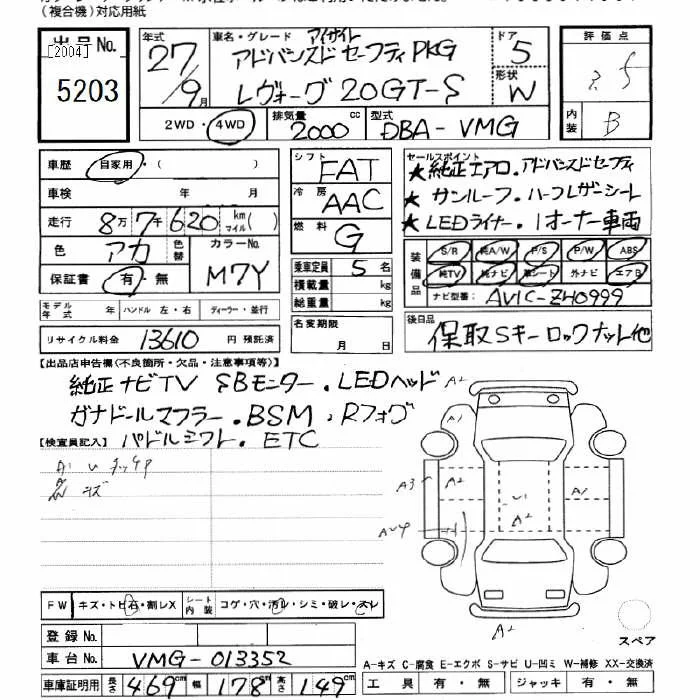 (複合機)対応用紙
出品No. [2004] 5203
年式 27/9月
車名・グレード アイサイト
アドバンスドセーフティPKG
レヴォーグ 20GT-S
ドア 5
形状 W
評価点
内装 B
2WD・4WD 排気量 2000 cc 型式 DBA-VMG
車歴 自家用・( )
車検 年 月
走行 8万7千620 km マイル( )
色 アカ 色替 カラーNo. M7Y
保証書 有・無
シフト FAT
冷房 AAC
燃料 G
乗車定員 5 名
積載量 kg
総重量 kg
セールスポイント
★純正エアロ.アドバンスドセーフティ
★サンルーフ.ハーフレザーシート
★LEDライナー.1オーナー車両
装備品 S/R 純A/W P/S P/W ABS
純TV 純ナビ 革シート 外ナビ エアB
ナビ型番: AVIC-ZH0999
モデル年式 年 ハンドル 左・右 ディーラー・並行
リサイクル料金 13610 円 預託済
名変期限 月 日
後日品 保取Sキーロックナット他
【出品店申告欄(不良箇所・欠品・注意事項等)】
純正ナビTV SBモニター.LEDヘッド
ガナドールマフラー.BSM、Rフォグ
パドルシフト.ETC
【検査員記入】
キズ
A2
A1
A3 A2 A1
A2
A2
FW キズ・トビ石・割レX シート内装 コゲ・穴・汚レ・シミ・破レ・スレ
スペア
登録No.
車台No. VMG-013352
A-キズ C-腐食 E-エクボ S-サビ U-凹ミ W-補修 XX-交換済
車庫証明用 長さ 469cm 幅 178cm 高さ 149cm
工具 有・無 ジャッキ 有・無